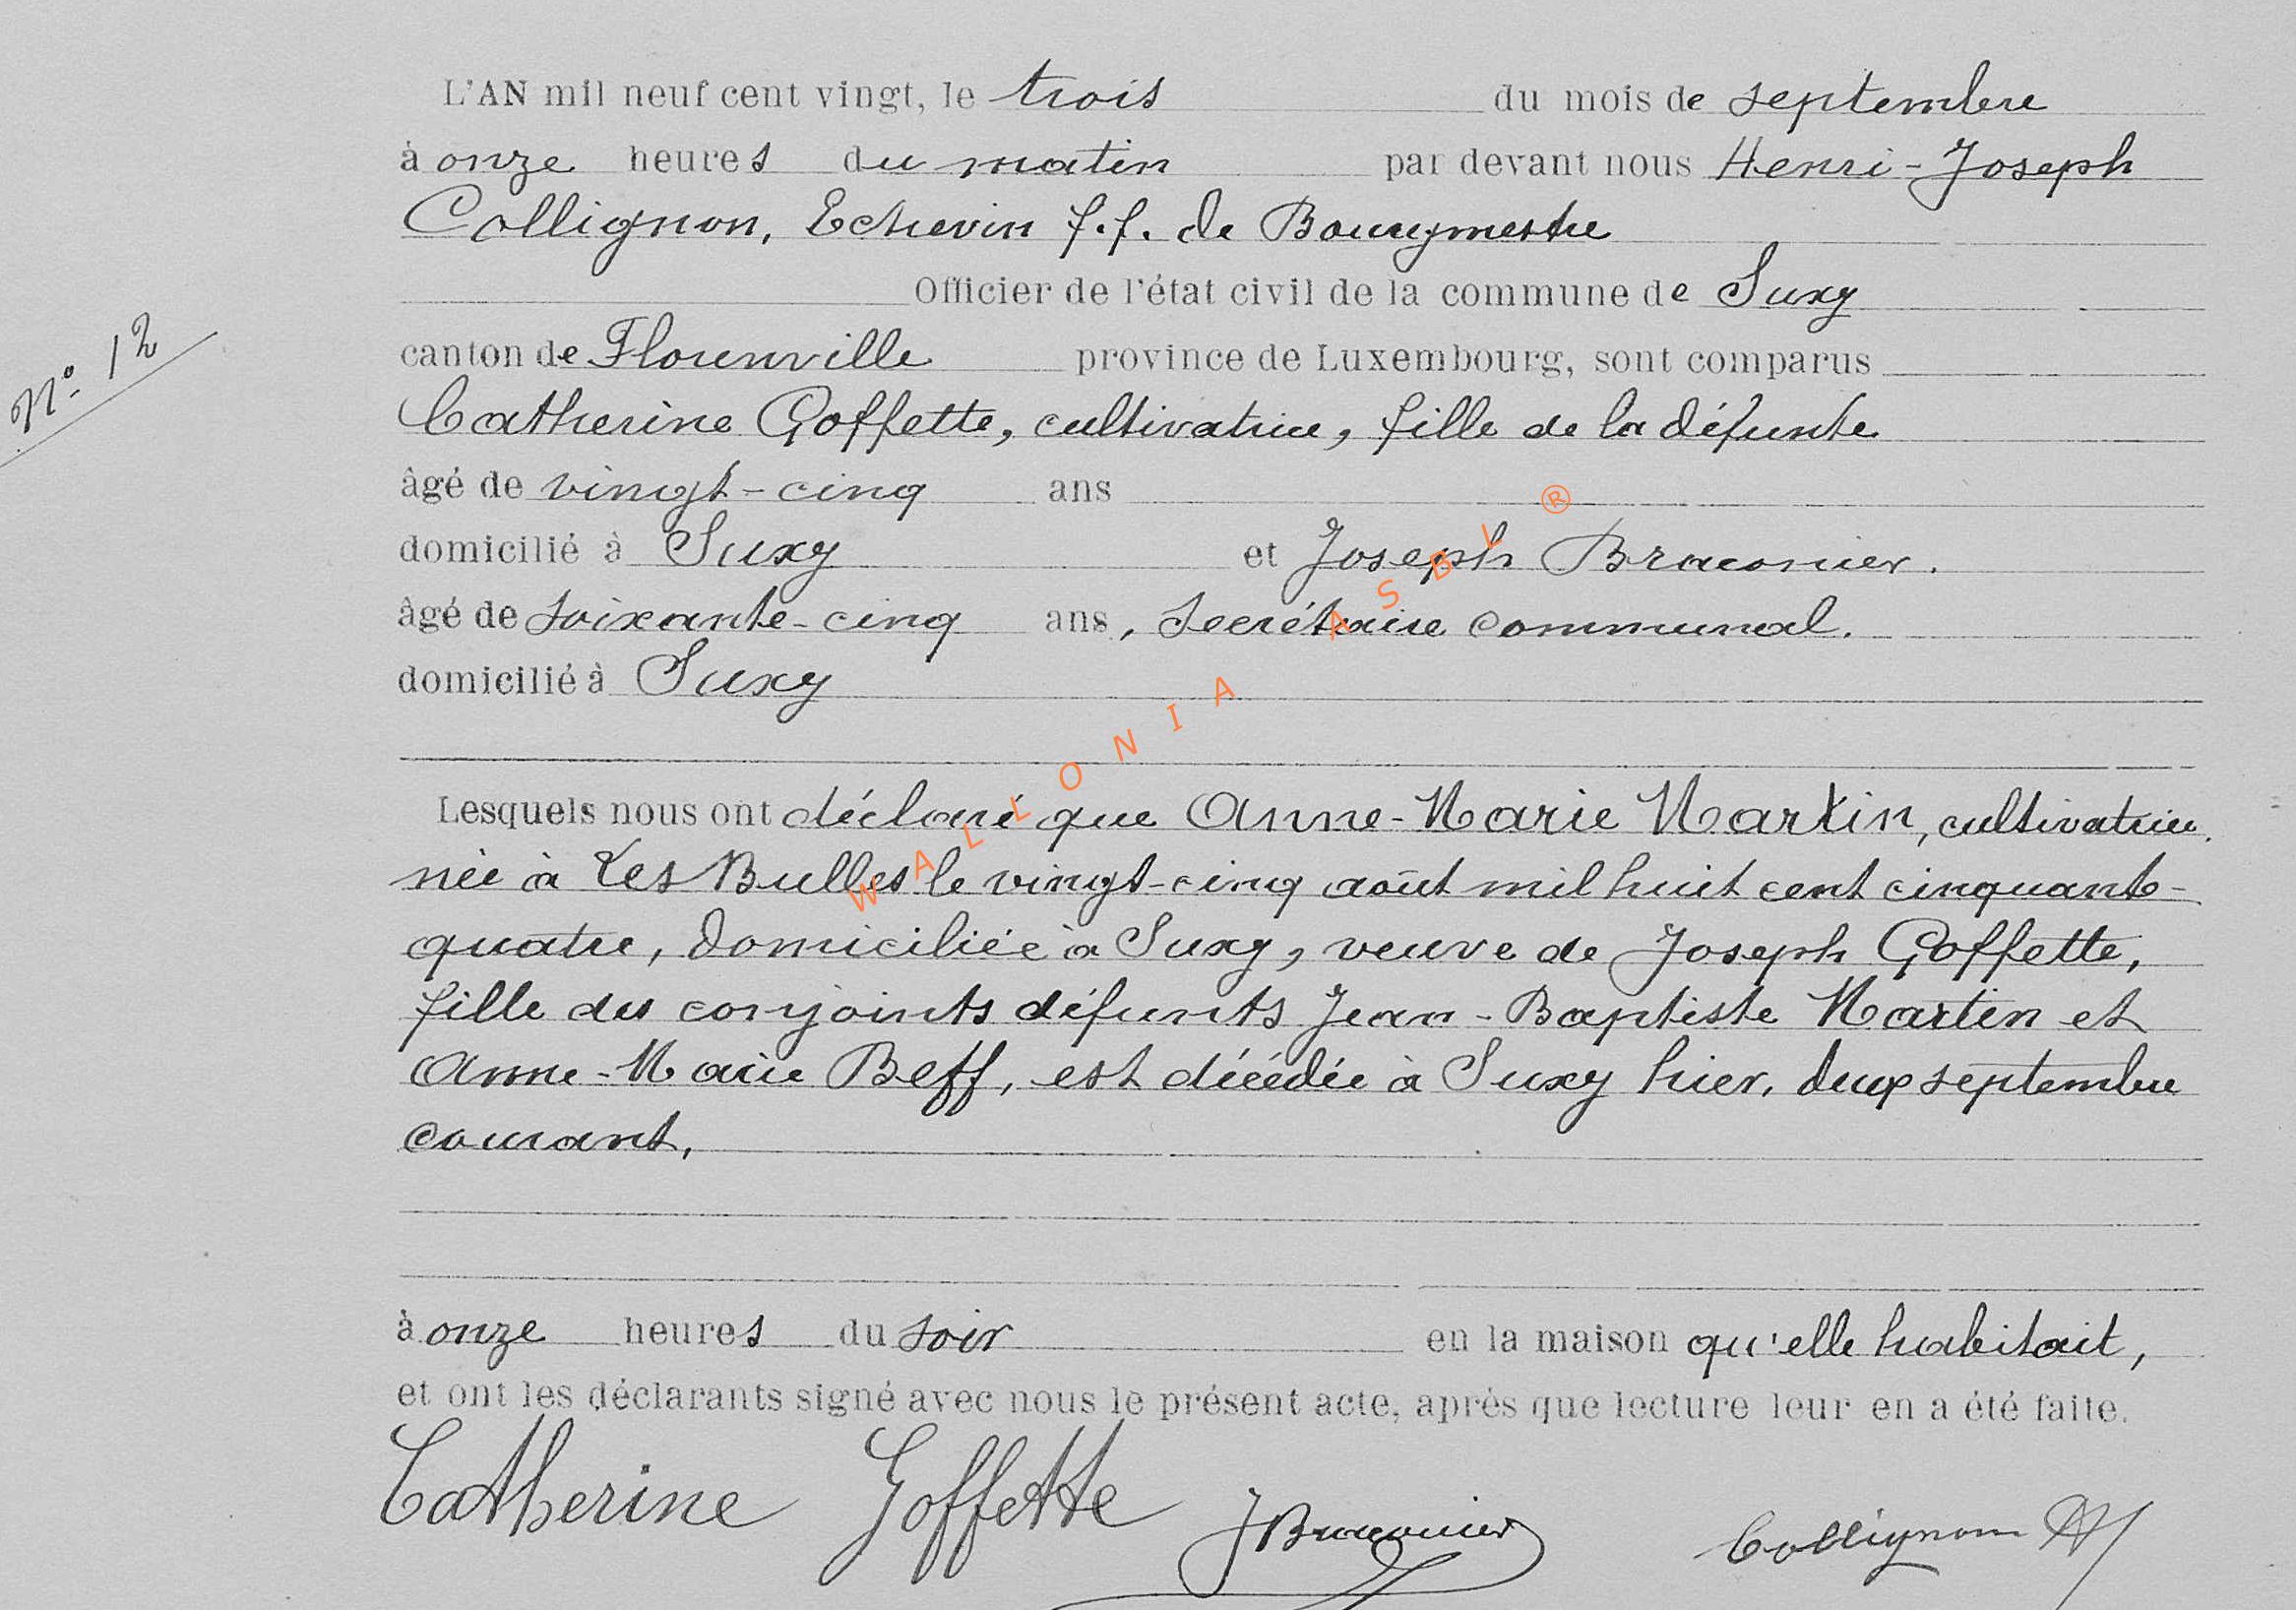 L'AN mil neuf cent vingt, le trois du mois de septembre
à onze heures du matin par devant nous Henri-Joseph
Collignon, Echevin f.f. de Bourgmestre
Officier de l'état civil de la commune de Suxy
N° 12
canton de Florenville province de Luxembourg, sont comparus
Catherine Goffette, cultivatrice, fille de la défunte
âgé de vingt-cinq ans
domicilié à Suxy et Joseph Braconier.
âgé de soixante-cinq ans, Secrétaire communal.
domicilié à Suxy
Lesquels nous ont déclaré que Anne-Marie Martin, cultivatrice,
née à Les Bulles le vingt-cinq août mil huit cent cinquante-
quatre, domiciliée à Suxy, veuve de Joseph Goffette,
fille des conjoints défunts Jean-Baptiste Martin et
Anne-Marie Beff, est décédée à Suxy hier, deux septembre
courant,
à onze heures du soir en la maison qu'elle habitait,
et ont les déclarants signé avec nous le présent acte, après que lecture leur en a été faite.
Catherine Goffette JBraconier Collignon HJ
WALLONIA ASBL ®